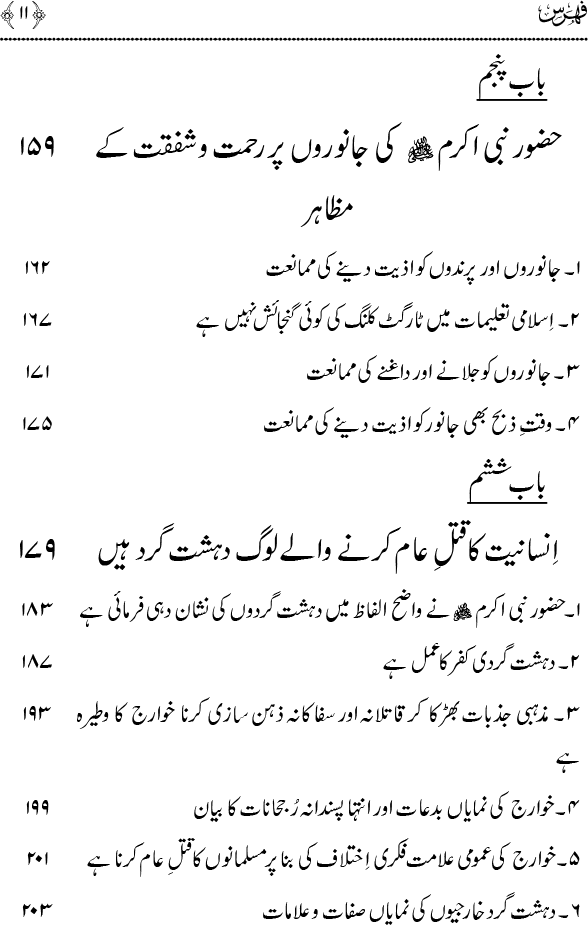 فہرس ﴿۱۱﴾
باب پنجم
حضور نبی اکرم ﷺ کی جانوروں پر رحمت و شفقت کے ۱۵۹
مظاہر
۱۔ جانوروں اور پرندوں کو اذیت دینے کی ممانعت ۱۶۲
۲۔ اِسلامی تعلیمات میں ٹارگٹ کلنگ کی کوئی گنجائش نہیں ہے ۱۶۷
۳۔ جانوروں کو جلانے اور داغنے کی ممانعت ۱۷۱
۴۔ وقتِ ذبح بھی جانور کو اذیت دینے کی ممانعت ۱۷۵
باب ششم
اِنسانیت کا قتلِ عام کرنے والے لوگ دہشت گرد ہیں ۱۷۹
۱۔ حضور نبی اکرم ﷺ نے واضح الفاظ میں دہشت گردوں کی نشان دہی فرمائی ہے ۱۸۳
۲۔ دہشت گردی کفر کا عمل ہے ۱۸۷
۳۔ مذہبی جذبات بھڑکا کر قاتلانہ اور سفاکانہ ذہن سازی کرنا خوارج کا وطیرہ ۱۹۳
ہے
۴۔ خوارج کی نمایاں بدعات اور انتہا پسندانہ رُجحانات کا بیان ۱۹۹
۵۔ خوارج کی عمومی علامت فکری اِختلاف کی بنا پر مسلمانوں کا قتلِ عام کرنا ہے ۲۰۱
۶۔ دہشت گرد خارجیوں کی نمایاں صفات و علامات ۲۰۳